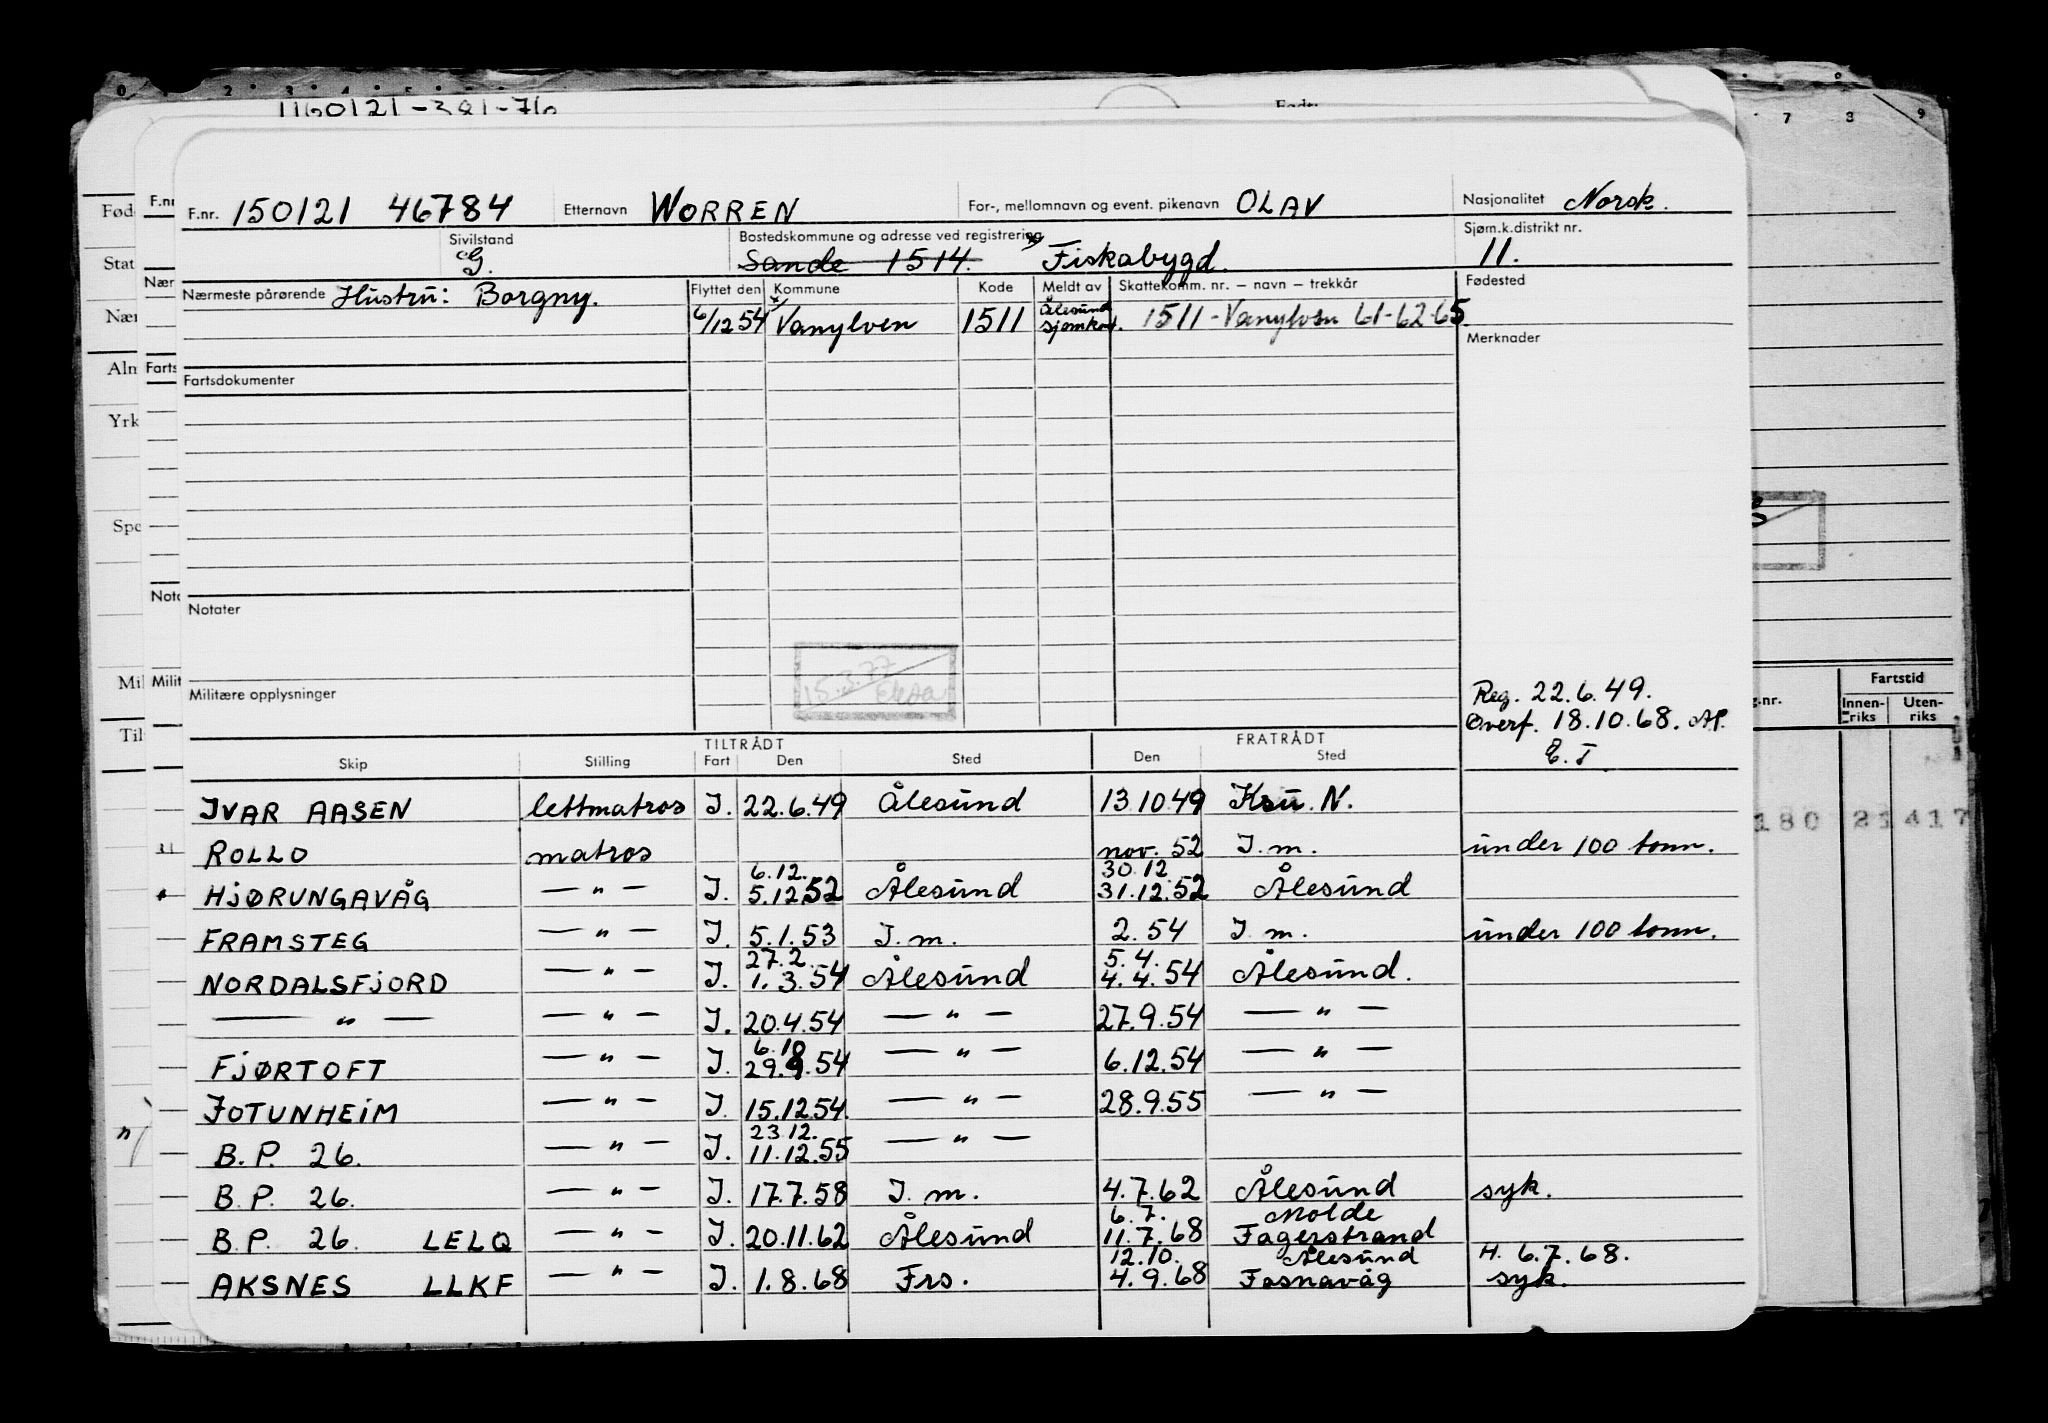 0 1 2 3 4 5 9
160121-381-76 Født:
7 8 9
F.nr. 150121 46784 Etternavn WORREN For-, mellomnavn og event. pikenavn OLAV Nasjonalitet Norsk.
Sivilstand G. Bostedskommune og adresse ved registrering Sande 1514. x Fiskabygd. Sjøm.k.distrikt nr. 11.
Nærmeste pårørende Hustru: Borgny. Flyttet den Kommune Kode Meldt av Skattekomm. nr. – navn – trekkår Fødested
6/12 54 x Vanylven 1511 Ålesund sjømkont. 1511 - Vanylven 61-62-65
Merknader
Fartsdokumenter
Notater
15.3.77
Militære opplysninger
Reg. 22.6.49.
Overf. 18.10.68. AP.
E.T
TILTRÅDT FRATRÅDT
Skip Stilling Fart Den Sted Den Sted
IVAR AASEN lettmatros I. 22.6.49 Ålesund 13.10.49 Krsu. N.
ROLLO matros nov. 52 I.m. under 100 tonn.
6.12. 30.12
HJØRUNGAVÅG — " — I. 5.12.52 Ålesund 31.12.52 Ålesund
FRAMSTEG — " — I. 5.1.53 I.m. 2.54 I.m. under 100 tonn.
27.2. 5.4.
NORDALSFJORD — " — I. 1.3.54 Ålesund 4.4.54 Ålesund.
— " — — " — I. 20.4.54 — " — 27.9.54 — " —
6.10
FJØRTOFT — " — I. 29.9.54 — " — 6.12.54 — " —
JOTUNHEIM — " — I. 15.12.54 — " — 28.9.55 — " —
23.12.
B.P. 26. — " — I. 11.12.55 — " —
B.P. 26. — " — I. 17.7.58 I.m. 4.7.62 Ålesund syk.
6.7. Molde
B.P. 26. LELQ — " — I. 20.11.62 Ålesund 11.7.68 Fagerstrand
12.10. Ålesund H. 6.7.68.
AKSNES LLKF — " — I. 1.8.68 Frs. 4.9.68 Fosnavåg syk.
Fød
Stat
Nær
Alm
Yrk
Spe
Mil
Til
F.nr
Nær
Farts
Nota
Milit
g.nr. Fartstid
Innen-riks Uten-riks
180 21417